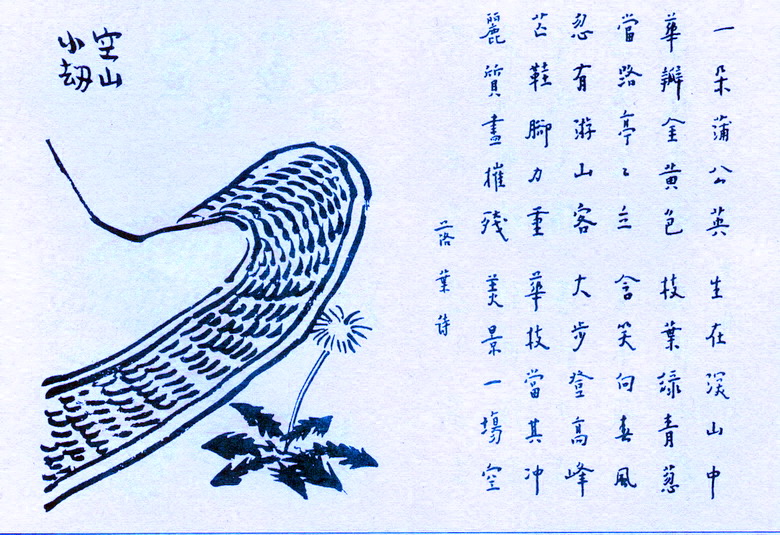 一朵蒲公英 生在深山中
華瓣金黄色 枝葉緑青葱
當路亭々立 含笑向春風
忽有游山客 大步登高峰
芒鞋腳力重 華枝當其冲
麗質盡摧殘 美景一場空
落葉詩
空山
小劫